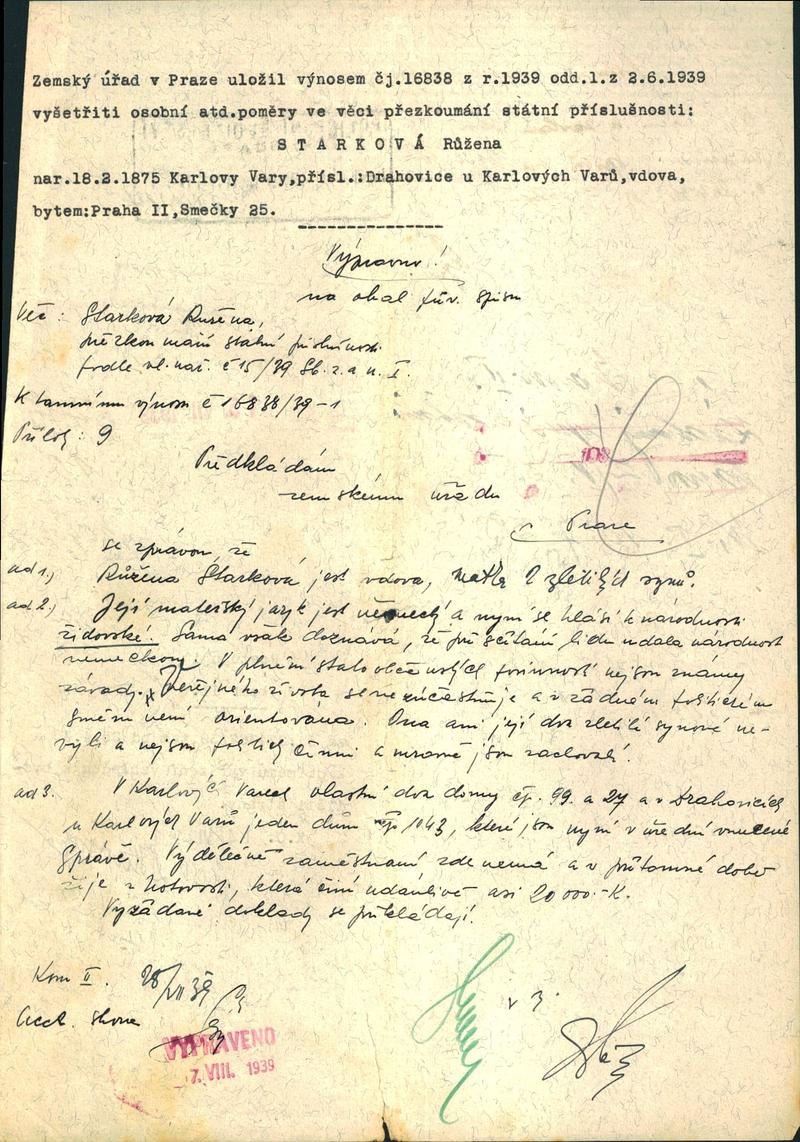 Zemský úřad v Praze uložil výnosem čj.16838 z r.1939 odd.1.z 2.6.1939
vyšetřiti osobní atd.poměry ve věci přezkoumání státní příslušnosti:
S T A R K O V Á Růžena
nar.18.2.1875 Karlovy Vary,přísl.:Drahovice u Karlových Varů,vdova,
bytem:Praha II,Smečky 25.
Výpravno!
na obal pův. spisu
Věc: Starková Ružena,
přezkoumání státní příslušnosti
podle vl. nař. č 15/39 Sb. z. a n. I.
K tamnímu výnosu č 16838/39-1
Příloh: 9
Předkládám
zemskému úřadu
v Praze
se zprávou, že
ad 1.) Růžena Starková jest vdova, matka 2 zletilých synů.
ad 2.) Její mateřský jazyk jest německý a nyní se hlásí k národnosti
židovské. Sama však doznává, že při sčítání lidu udala národnost
německou. V plnění státoobčanských povinností nejsou známy
závady. Veřejného života se nezúčastňuje a v žádném politickém
směru není orientována. Ona ani její dva zletilí synové ne-
byli a nejsou politicky činni a mravně jsou zachovalí.
ad 3. V Karlových Varech vlastní dva domy čp. 99. a 27 a v Drahovicích
u Karlových Varů jeden dům čp 1043, které jsou nyní v úřední vnucené
správě. Výdělečně zaměstnaná zde nemá a v přítomné době
žije z hotovosti, která činí udánlivě asi 20000.-K.
Vyžádané doklady se přikládají.
Kom II. 28/VII 39
v z.
VYPRAVENO
7. VIII. 1939